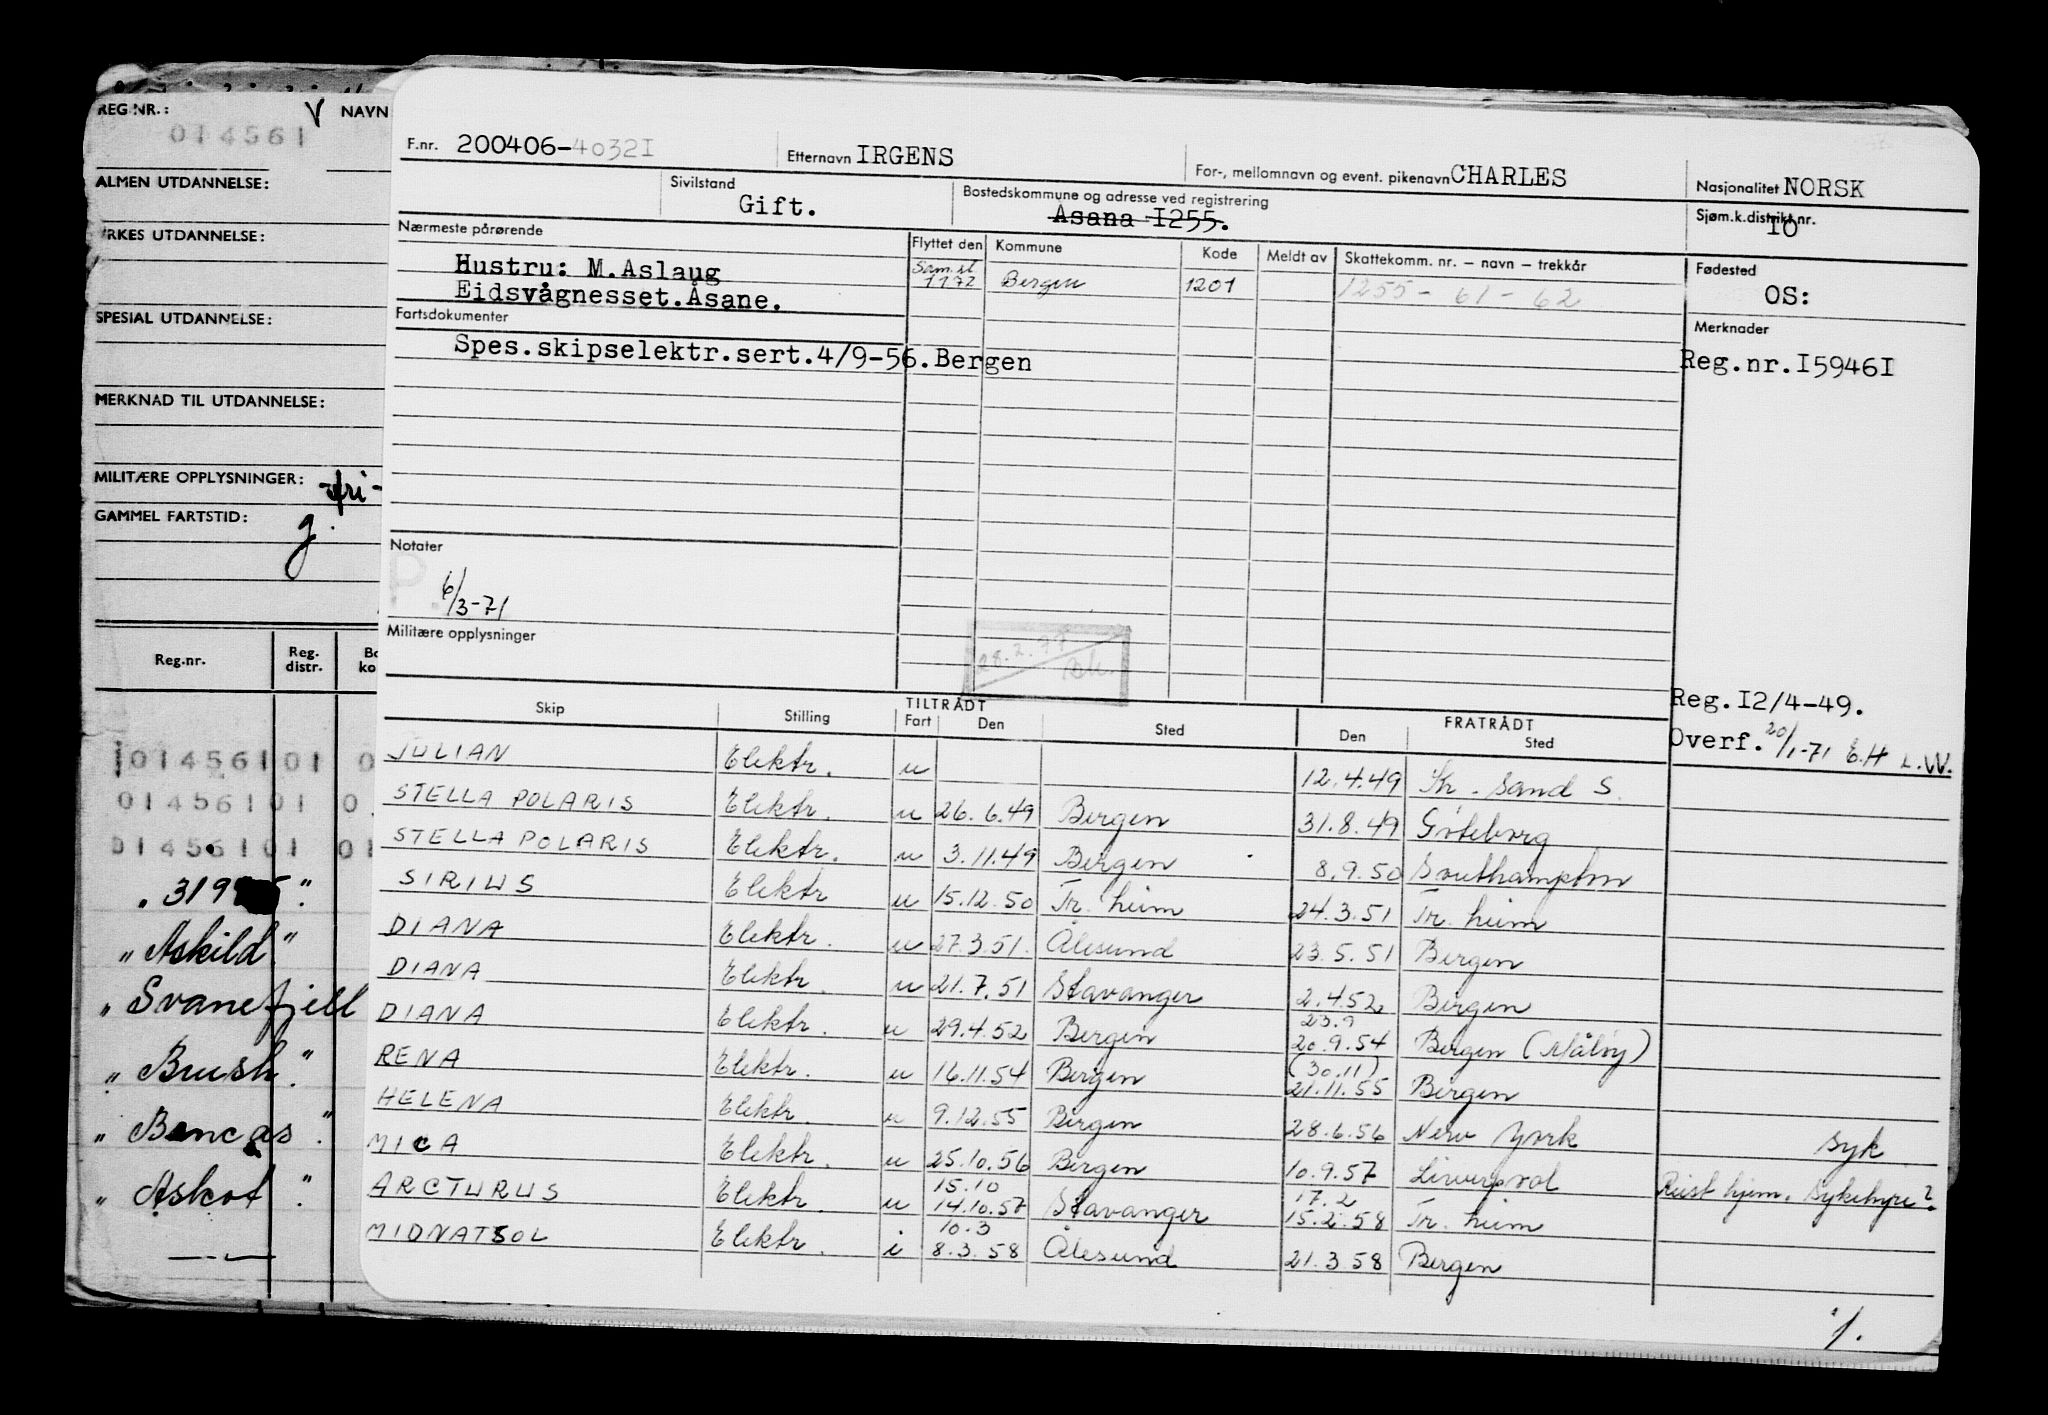 REG.NR.: V NAVN
014561
ALMEN UTDANNELSE:
YRKES UTDANNELSE:
SPESIAL UTDANNELSE:
MERKNAD TIL UTDANNELSE:
MILITÆRE OPPLYSNINGER: -fri-
GAMMEL FARTSTID: g.
Reg.nr. Reg. distr. Bo ko
01456101 0
01456101 0
01456101 01
"Askild"
"Svanefjell
"Brush"
"Bencas"
"Askot"
F.nr. 200406-4032I Etternavn IRGENS For-, mellomnavn og event. pikenavn CHARLES Nasjonalitet NORSK
Sivilstand Gift. Bostedskommune og adresse ved registrering Åsana I255. Sjøm.k.distrikt nr. IO
Nærmeste pårørende Flyttet den Kommune Kode Meldt av Skattekomm. nr. – navn – trekkår Fødested
Hustru: M.Aslaug Sam.st 1172 Bergen 1201 1255 - 61 - 62 OS:
Eidsvågnesset.Åsane.
Fartsdokumenter Merknader
Spes.skipselektr.sert.4/9-56.Bergen Reg.nr.I5946I
Notater
P.
6/3-71
Militære opplysninger
28.2.77
Reg.I2/4-49.
Overf. 20/1-71 E.H L.W.
Skip Stilling TILTRÅDT Fart Den Sted FRATRÅDT Den Sted
JULIAN Elektr. u 12.4.49 Kr. Sand S.
STELLA POLARIS Elektr. u 26.6.49 Bergen 31.8.49 Göteborg
STELLA POLARIS Elektr. u 3.11.49 Bergen 8.9.50 Southampton
SIRIUS Elektr u 15.12.50 Tr. heim 24.3.51 Tr. heim
DIANA Elektr. u 27.3.51. Ålesund 23.5.51 Bergen
DIANA Elektr. u 21.7.51 Stavanger 2.4.52 Bergen
23.9
DIANA Elektr. u 29.4.52 Bergen 20.9.54 Bergen (Måløy)
(30.11)
RENA Elektr. u 16.11.54 Bergen 21.11.55 Bergen
HELENA Elektr. u 9.12.55 Bergen 28.6.56 New York syk
MICA Elektr. u 25.10.56 Bergen 10.9.57 Liverpool Reist hjem. Sykehyre?
15.10 17.2
ARCTURUS Elektr. u 14.10.57 Stavanger 15.2.58 Tr. heim
10.3
MIDNATSOL Elektr. i 8.3.58 Ålesund 21.3.58 Bergen